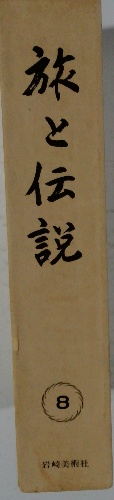 旅と伝説
8
岩崎美術社